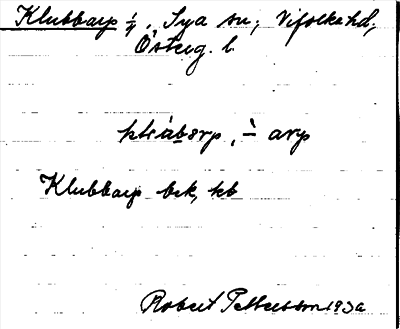 Klubbarp 1/4, Sya sn, Vifolka hd,
Österg. l.
arp
Klubbarp bek, kb
Robert Pettersson 193